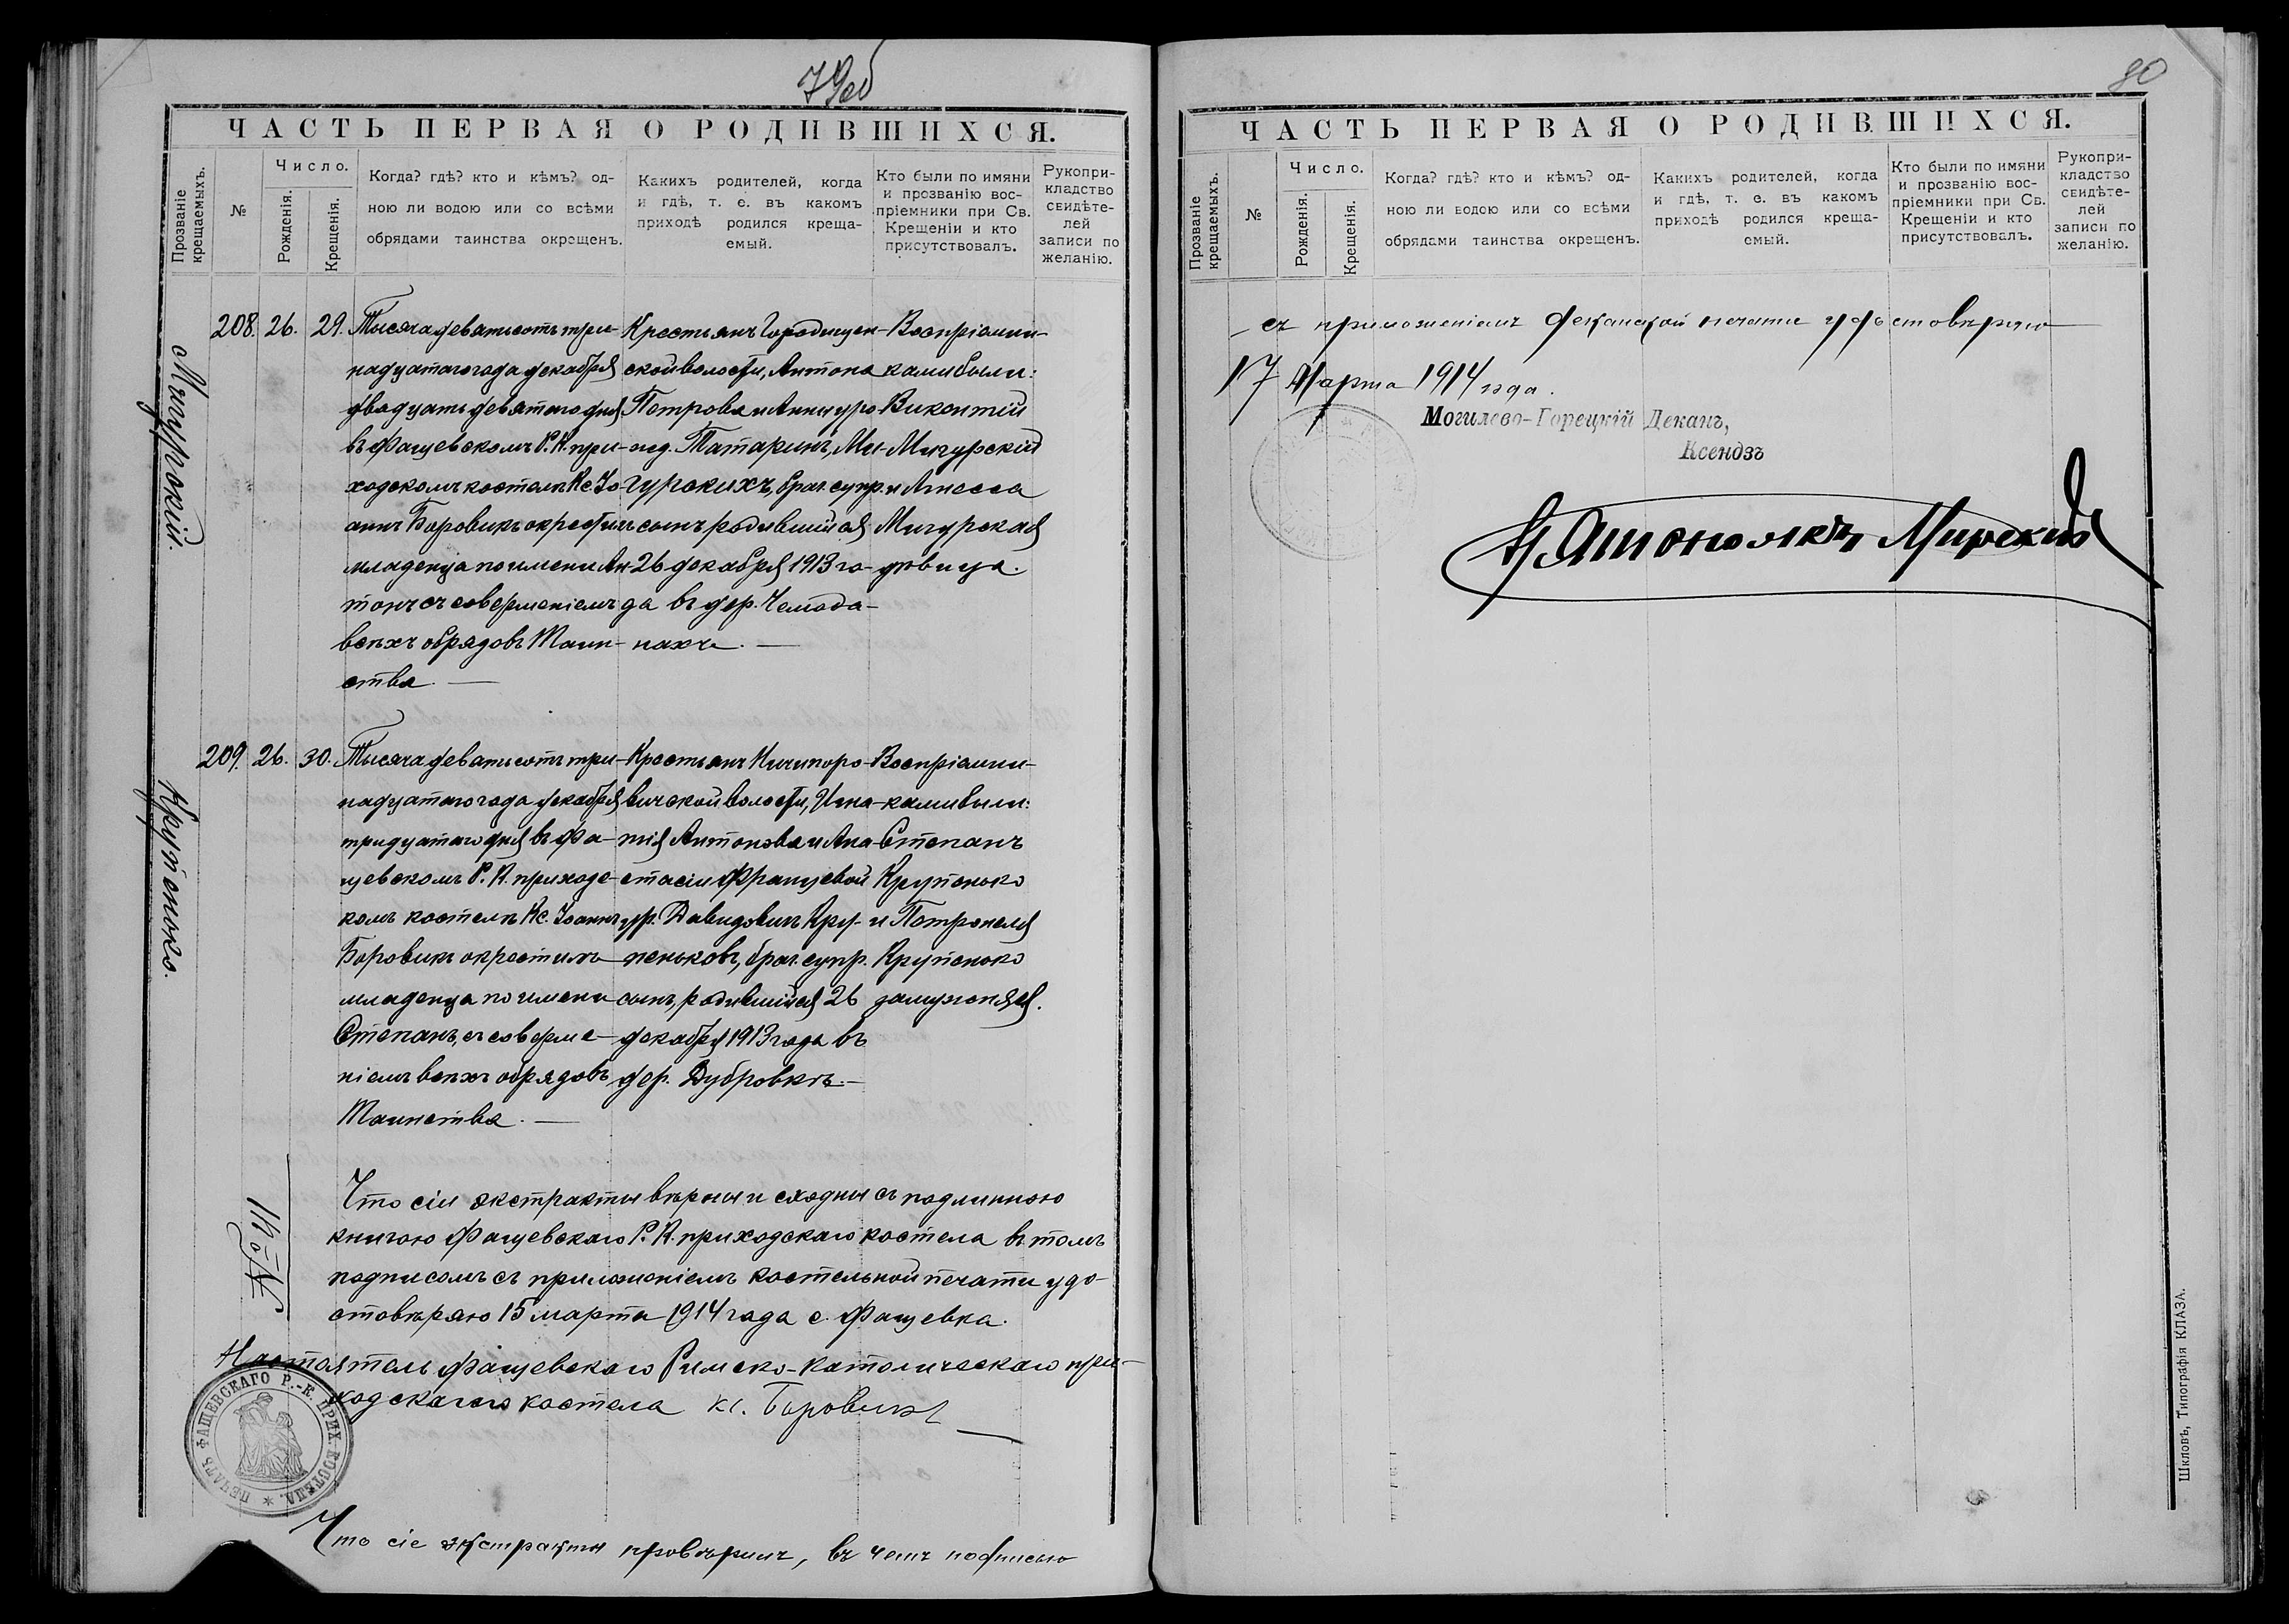 79об
ЧАСТЬ ПЕРВАЯ О РОДИВШИХСЯ.
Прозваніе крещаемыхъ.
№
Число.
Рожденія.
Крещенія.
Когда? гдѣ? кто и кѣмъ? од-
ною ли водою или со всѣми
обрядами таинства окрещенъ.
Какихъ родителей, когда
и гдѣ, т. е. въ какомъ
приходѣ родился креща-
емый.
Кто были по имяни
и прозванію вос-
пріемники при Св.
Крещеніи и кто
присутствовалъ.
Рукопри-
кладство
свидѣте-
лей
записи по
желанію.
Мигурскій.
208. 26. 29.
Тысяча девятьсотъ три-
надцатаго года декабря
двадцать девятаго дня
въ Фащевскомъ Р. К. при-
ходскомъ костелѣ Кс. Іо-
аннъ Боровикъ окрестилъ
младенца по имени Ан-
тонъ съ совершеніемъ
всѣхъ обрядовъ Таин-
ства. —
Крестьянъ Городищен-
ской волости, Антона
Петрова и Анны уро-
жд. Татаринъ, Ми-
гурскихъ, брач. супр.
сынъ родившійся
26 декабря 1913 го-
да въ дер. Чемода-
нахъ. —
Воспріемни-
ками были:
Викентій
Мигурскій
и Агнесса
Мигурская
дѣвица.
Крупенько.
209. 26. 30.
Тысяча девятьсотъ три-
надцатаго года декабря
тридцатаго дня въ Фа-
щевскомъ Р. К. приходс-
комъ костелѣ Кс. Іоаннъ
Боровикъ окрестилъ
младенца по имени
Степанъ, съ соверше-
ніемъ всѣхъ обрядовъ
Таинства. —
Крестьянъ Ничипоро-
вичской волости, Игна-
тія Антонова и Ана-
стасіи Францевой
ур. Давидовичъ Кру-
пеньковъ, брач. супр.
сынъ, родившійся 26
декабря 1913 года въ
дер. Дубровкѣ. —
Воспріемни-
ками были:
Степанъ
Крупенько
и Петронеля
Крупенько
замужняя.
Что сіи экстракты вѣрны и сходны съ подлинною
книгою Фащевскаго Р. К. приходскаго костела въ томъ
подписомъ съ приложеніемъ костельной печати удо-
стовѣряю 15 марта 1914 года с. Фащевка.
Настоятель Фащевскаго Римско-католическаго при-
ходскаго костела кс. Боровикъ
ПЕЧАТЬ ФАЩЕВСКАГО Р.-К. ПРИХ. КОСТЕЛА.
Что сіе экстракты провѣрилъ, въ чемъ подписью
80
ЧАСТЬ ПЕРВАЯ О РОДИВШИХСЯ.
Прозваніе крещаемыхъ.
№
Число.
Рожденія.
Крещенія.
Когда? гдѣ? кто и кѣмъ? од-
ною ли водою или со всѣми
обрядами таинства окрещенъ.
Какихъ родителей, когда
и гдѣ, т. е. въ какомъ
приходѣ родился креща-
емый.
Кто были по имяни
и прозванію вос-
пріемники при Св.
Крещеніи и кто
присутствовалъ.
Рукопри-
кладство
свидѣте-
лей
записи по
желанію.
съ приложеніемъ деканской печати удостовѣряю
17 Марта 1914 года.
Могилево-Горецкій Деканъ,
Ксендзъ
Мирскій
Шкловъ, Типографія КЛАЗА.